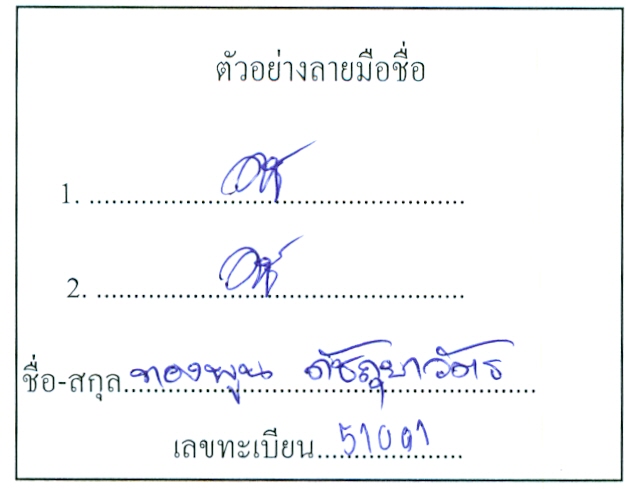 ตัวอย่างลายมือชื่อ
1.
2.
ชื่อ-สกุล ทองพูน
เลขทะเบียน 51001